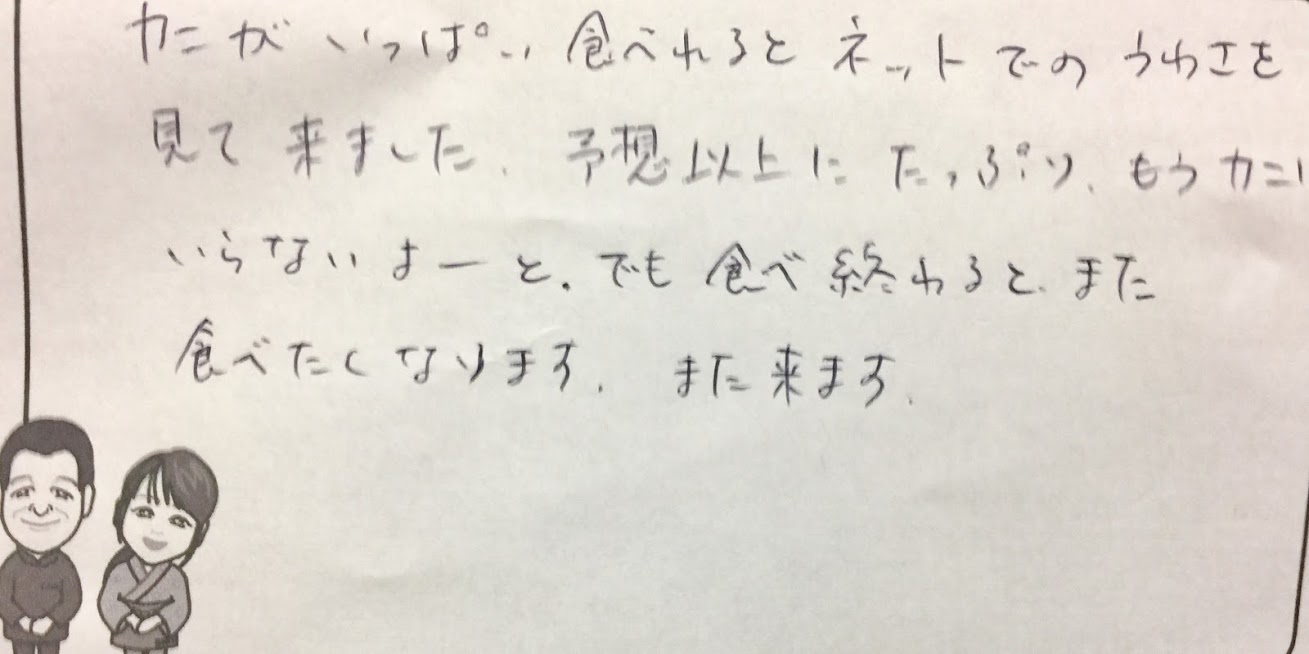 カニがいっぱい食べれるとネットでのうわさを
見て来ました。予想以上にたっぷり、もうカニは
いらないよーと。でも食べ終わると、また
食べたくなります。また来ます。